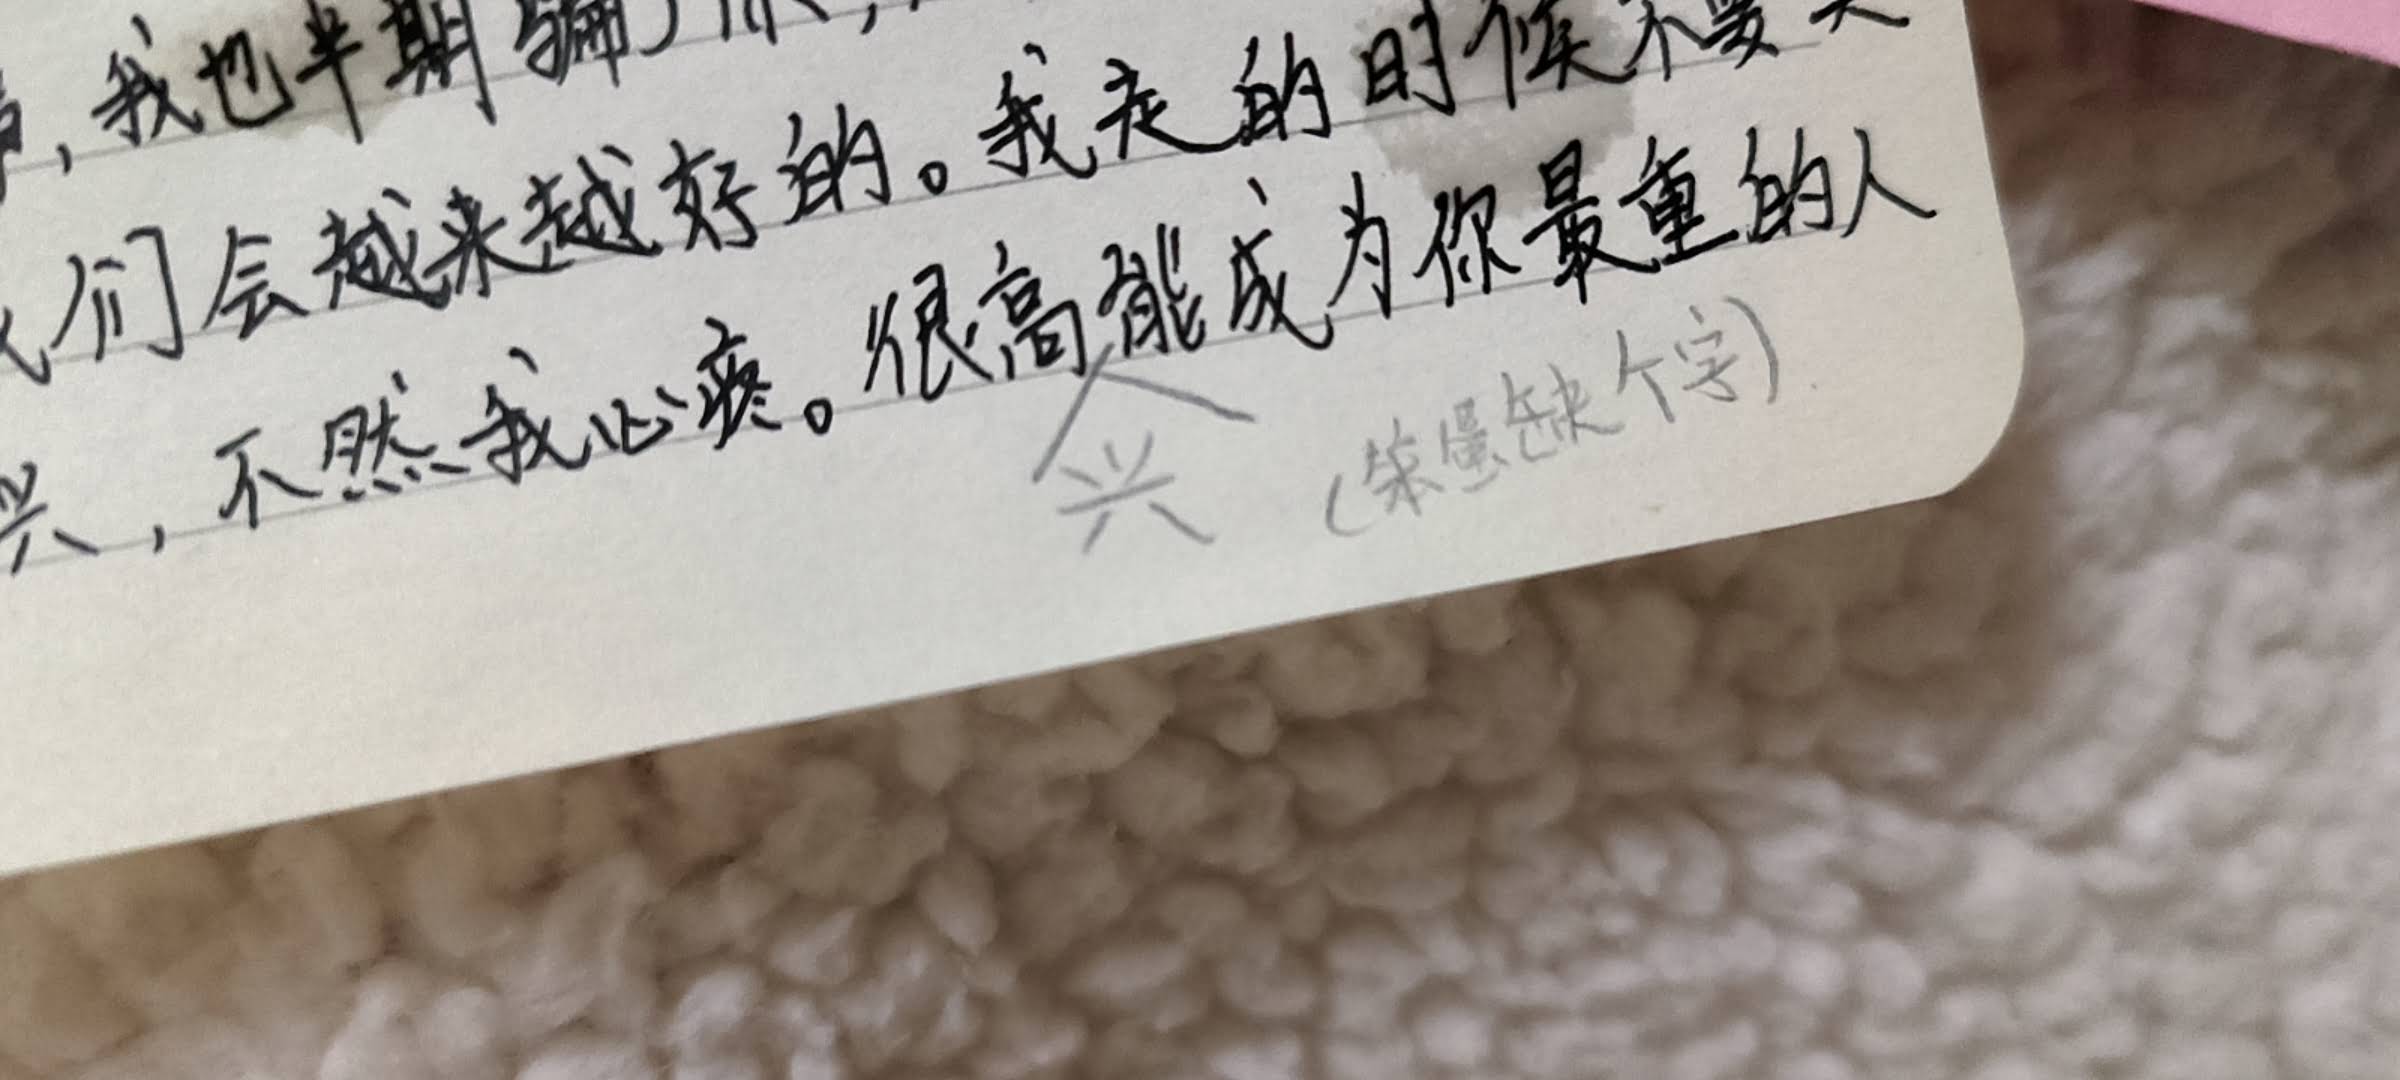 ,我也半期骗了你,
们会越来越好的。我走的时候不要哭
,不然我心疼。很高能成为你最重的人
兴
(笨蛋缺个字)